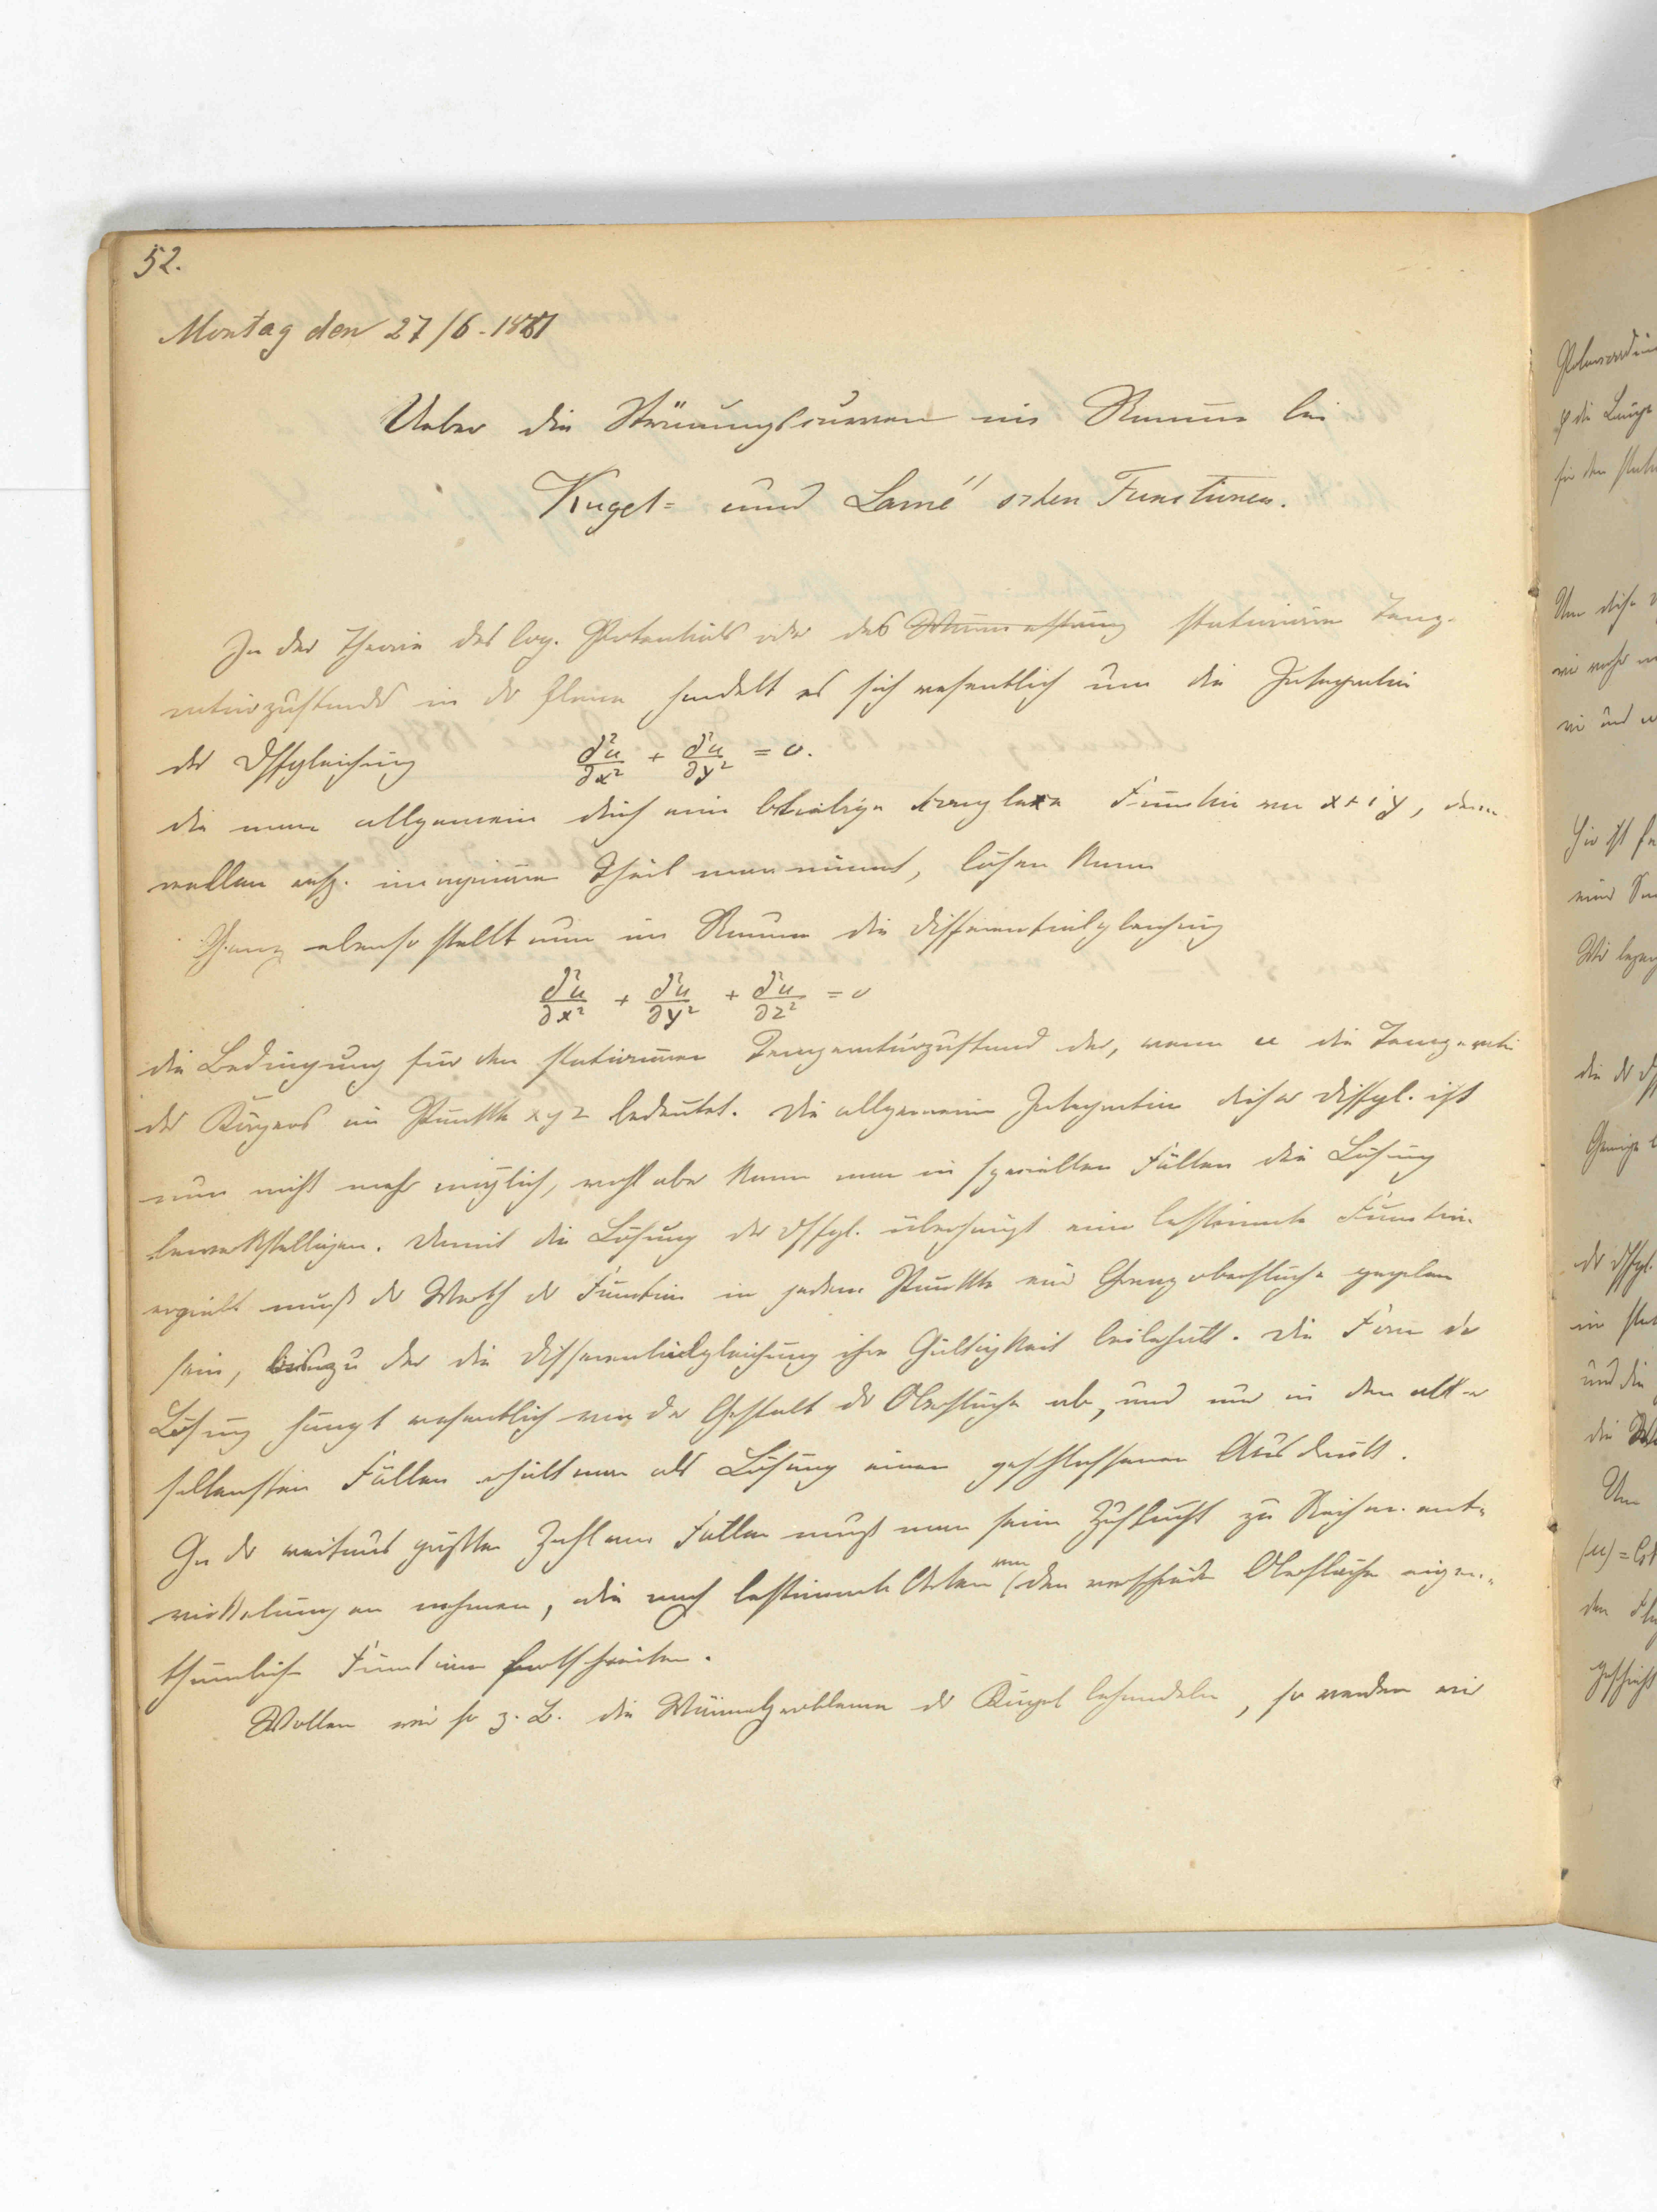 52.
Montag den 27/6-1881
Ueber die Strömungscurven im Raume bei
Kugel= und Lamé'schen Functionen.
In der Theorie des log. Potentials oder des stationären Temp-
eraturzustands in der Ebene handelt es sich wesentlich um die Integration
der Dffgleichung ∂²u/∂x² + ∂²u/∂y² = 0.
die man allgemein durch eine beliebige complexe Function von x+iy, deren
reellen resp. imaginären Theil man nimmt, lösen kann
Ganz ebenso stellt nun im Raume die Differentialgleichung
∂²u/∂x² + ∂²u/∂y² + ∂²u/∂z² = 0
die Bedingung für den stationären Temperaturzustand dar, wenn u die Temperatur
des Körpers im Punkte xyz bedeutet. Die allgemeine Integration dieser Diffgl. ist
nun nicht mehr möglich, wohl aber kann man in speciellen Fällen die Lösung
bewerkstelligen. Damit die Lösung der Dffgl. überhaupt eine bestimmte Function
ergiebt muß der Werth der Function in jedem Punkte einer Grenzoberfläche gegeben
sein, bis zu der die Differentialgleichung ihre Gültigkeit beibehält. Die Form der
Lösung hängt wesentlich von der Gestalt der Oberfläche ab, und nur in den aller
seltensten Fällen erhält man als Lösung einen geschlossenen Ausdruck.
In der weitaus größten Zahl von Fällen muß man seine Zuflucht zu Reihenent-
wickelungen nehmen, die nach bestimmten Arten von den verschieden Oberflächen eigen-
thümliche Functionen fortschreiten.
Wollen wir so z. B. die Wärmeprobleme der Kugel behandeln, so werden wir